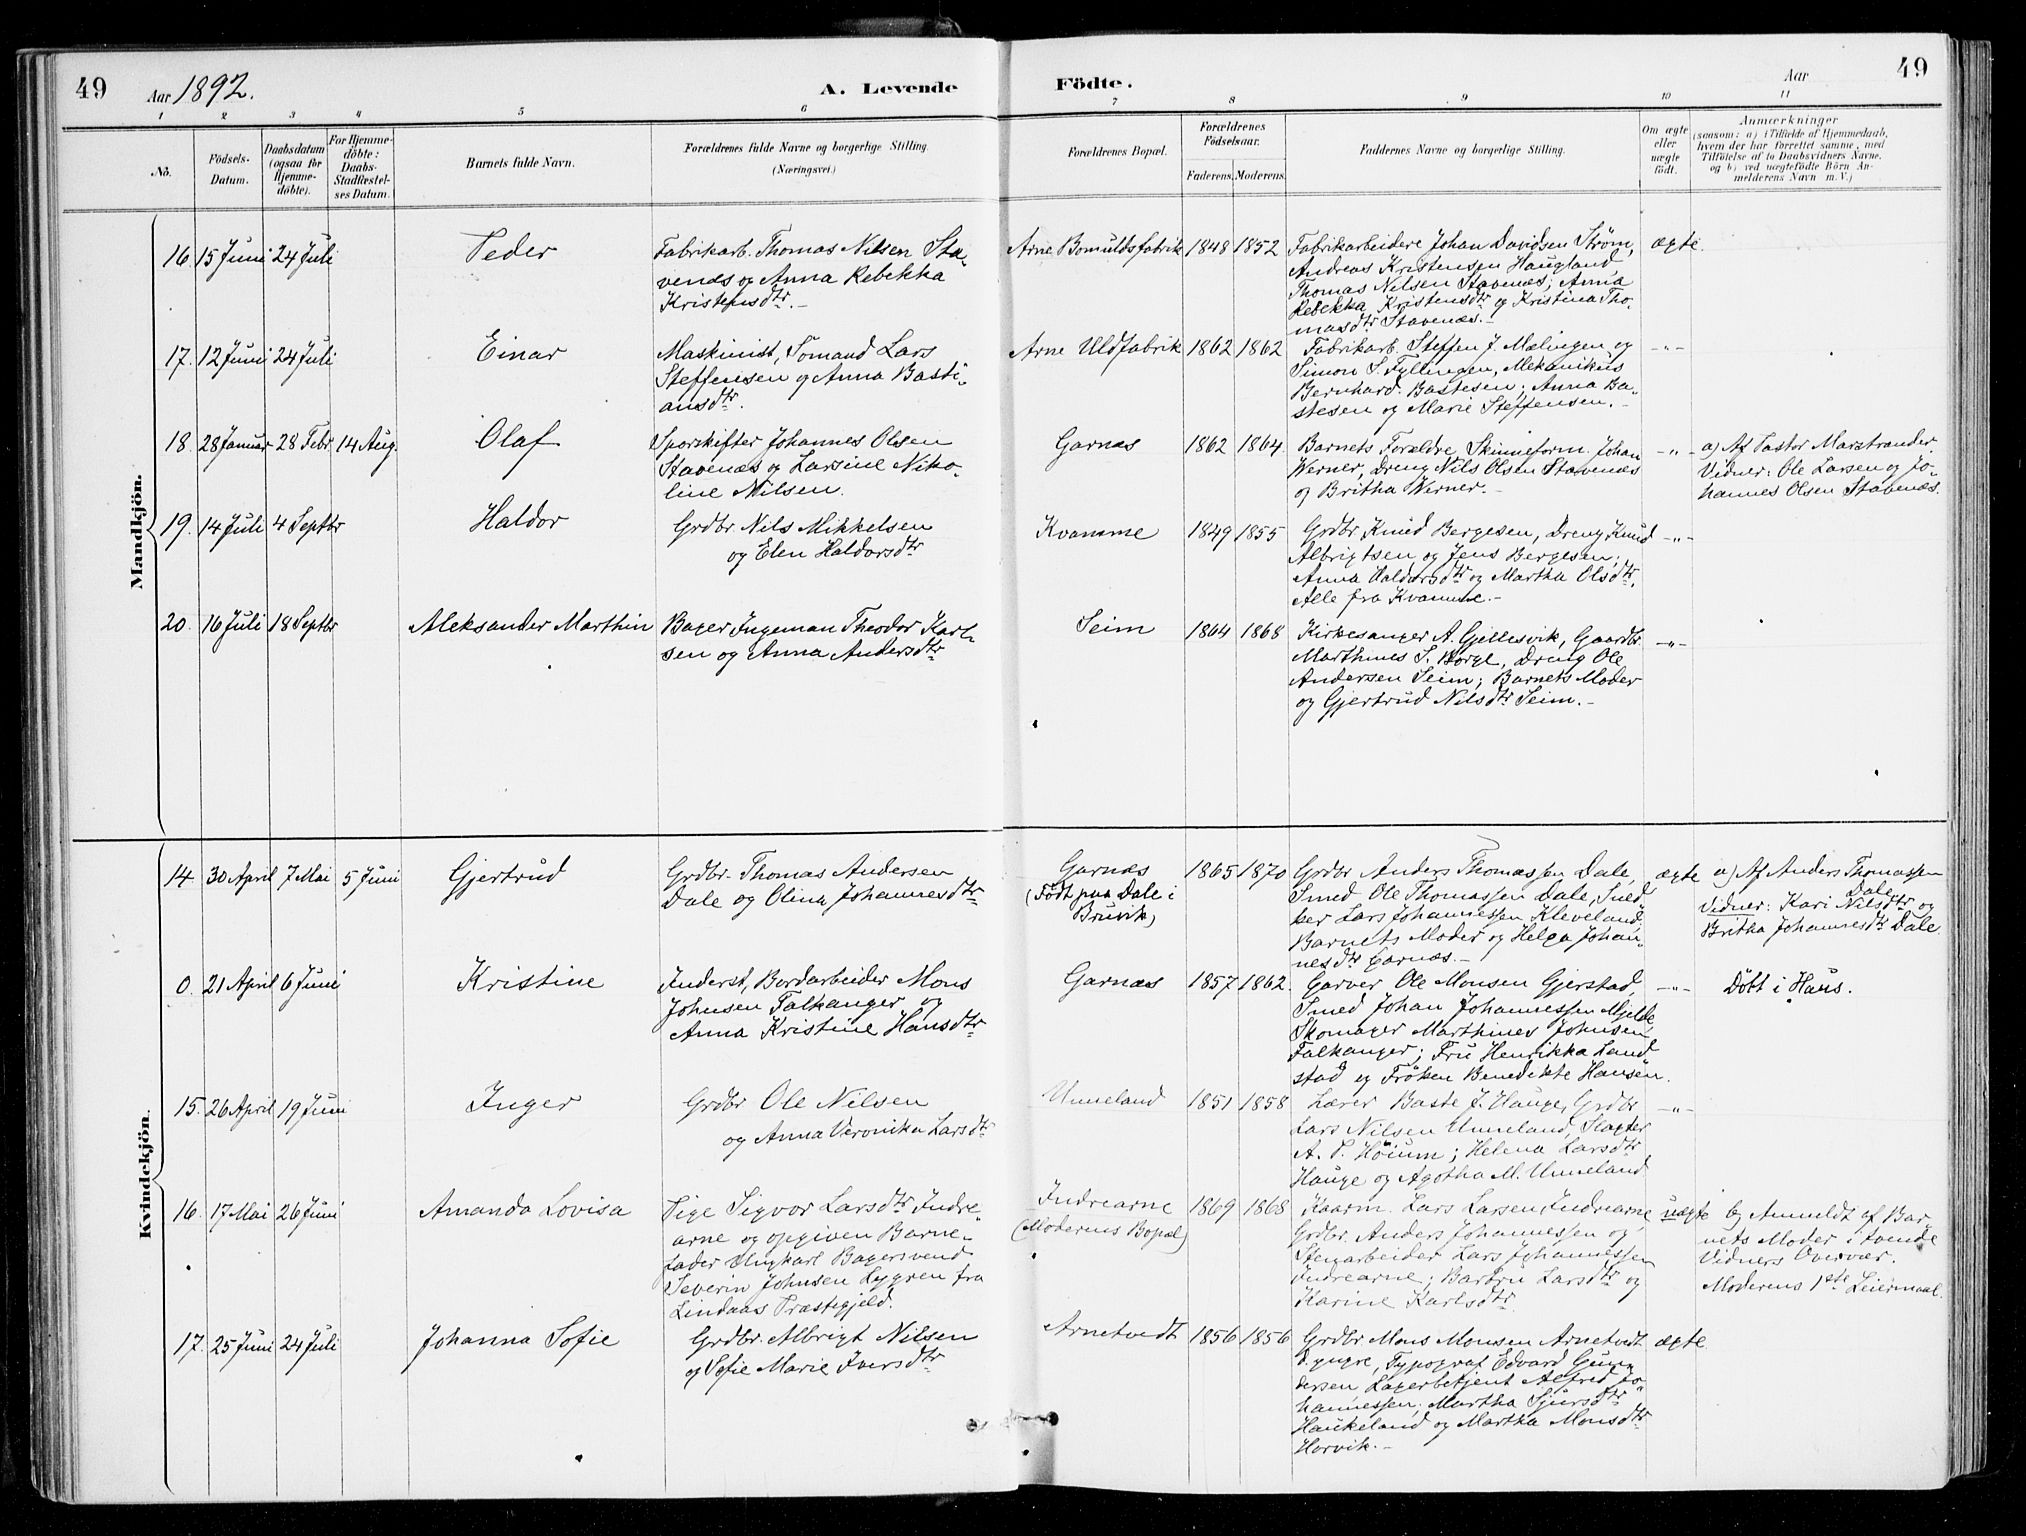 49
Aar 1892.
A. Levende
Födte.
Aar
49
1 2 3 4 5 6 7 8 9 10 11
No.
Födsels-
Datum.
Daabsdatum
(ogsaa for
Hjemme-
døbte).
For Hjemme-
døbte:
Daabs-
Stadfæstel-
ses Datum.
Barnets fulde Navn.
Forældrenes fulde Navne og borgerlige Stilling.
(Næringsvei.)
Forældrenes Bopæl.
Forældrenes
Födselsaar.
Faderens. Moderens.
Faddernes Navne og borgerlige Stilling.
Om ægte
eller
uægte
født.
Anmærkninger
(saasom: a) i Tilfælde af Hjemmedaab,
hvem der har forrettet samme, med
Tilföielse af to Daabsvidners Navne,
og b) ved uægtefödte Börn An-
melderens Navn m. V.)
Mandkjön.
16. 15 Juni 24 Juli
Peder
Fabrikarb. Thomas Nilsen Sta-
venæs og Anna Rebekka
Kristensdtr.-
Arne Bomuldsfabrik 1848 1852
Fabrikarbeidere Johan Davidsen Strøm,
Andreas Kristensen Haugland,
Thomas Nilsen Stavenæs; Anna
Rebekka Kristensdtr og Kristina Tho-
masdtr Stavenæs.-
ægte.
17. 12 Juni 24 Juli
Einar
Maskinist, Sömand Lars
Steffensen og Anna Basti-
ansdtr.
Arne Uldfabrik 1862 1862
Fabrikarb. Steffen J. Mælingen og
Simon S. Fyllingen, Mekanikus
Bernhard Bastesen; Anna Ba-
stesen og Marie Steffensen.-
-"-
18. 28 Januar 28 Febr. 14 Aug.
Olaf
Sporskifter Johannes Olsen
Stavenæs og Larsine Niko-
line Nilsen.
Garnæs 1862 1864
Barnets Forældre, Skinneform. Johan
Werner, Dreng Nils Olsen Stavenæs
og Britha Werner.-
-"-
a) Af Pastor Marstrander.
Vidner: Ole Larsen og Jo-
hannes Olsen Stavenæs.
19. 14 Juli 4 Septbr
Haldor
Grdbr. Nils Mikkelsen
og Elen Haldorsdtr
Kvamme 1849 1855
Grdbr. Knud Bergesen, Dreng Knud
Albrigtsen og Jens Bergesen;
Anna Haldorsdtr og Martha Olsdtr.
Alle fra Kvamme.-
-"-
20. 16 Juli 18 Septbr
Aleksander Marthin
Bager Ingeman Theodor Karl-
sen og Anna Andersdtr
Seim 1864 1868
Kirkesanger A. Gjellesvik, Gaardbr.
Marthines S. Borge, Dreng Ole
Andersen Seim; Barnets Moder
og Gjertrud Nilsdtr Seim.-
-"-
Kvindekjön.
14. 30 April 7 Mai 5 Juni
Gjertrud
Grdbr. Thomas Andersen
Dale og Olina Johannesdtr
Garnæs
(Födt paa Dale i
Bruvik)
1865 1870
Grdbr Anders Thomassen Dale,
Smed Ole Thomassen Dale, Sned-
ker Lars Johannessen Kleveland;
Barnets Moder og Helga Johan-
nesdtr Garnæs.-
ægte
a) Af Anders Thomassen
Dale.
Vidner: Kari Nilsdtr og
Britha Johannesdtr Dale.
0. 21 April 6 Juni
Kristine
Inderst, Bordarbeider Mons
Johnsen Falkanger og
Anna Kristine Hansdtr
Garnæs 1857 1862.
Garver Ole Monsen Gjerstad,
Smed Johan Johannessen Mjelde,
Skomager Marthines Johnsen
Falkanger; Fru Henrikka Land-
stad og Fröken Benedikte Hansen.
-"-
Döbt i Haus.
15. 26 April 19 Juni
Inger
Grdbr Ole Nilsen
og Anna Veronika Larsdtr
Unneland 1851 1858
Lærer Baste J. Hauge, Grdbr.
Lars Nilsen Unneland, Slagter
A. P. Höium; Helena Larsdtr
Hauge og Agotha M. Unneland
-"-
16. 17 Mai 26 Juni
Amanda Lovisa
Pige Sigvor Larsdtr Indre-
arne og opgiven Barne-
fader Ungkarl Bagersvend
Severin Johnsen Lygren fra
Lindaas Præstegjeld.
Indrearne
(Moderens Bopæl)
1869 1868
Kaarm. Lars Larsen Indrearne
Grdbr. Anders Johannessen og
Stenarbeider Lars Johannessen
Indrearne; Barbru Larsdtr og
Karine Karlsdtr.
uægte
b) Anmeldt af Bar-
nets Moder i tvende
Vidners Overvær.
Moderens 1ste Leiermaal.
17. 25 Juni 24 Juli
Johanna Sofie
Grdbr. Albrigt Nilsen
og Sofie Marie Iversdtr
Arnetvedt 1856 1856
Grdbr Mons Monsen Arnetvedt
d. yngre, Typograf Edvard Gun-
dersen, Lagerbetjent Alfred Jo-
hannessen; Martha Sjursdtr
Haukeland og Martha Monsdtr
Horvik.-
ægte.